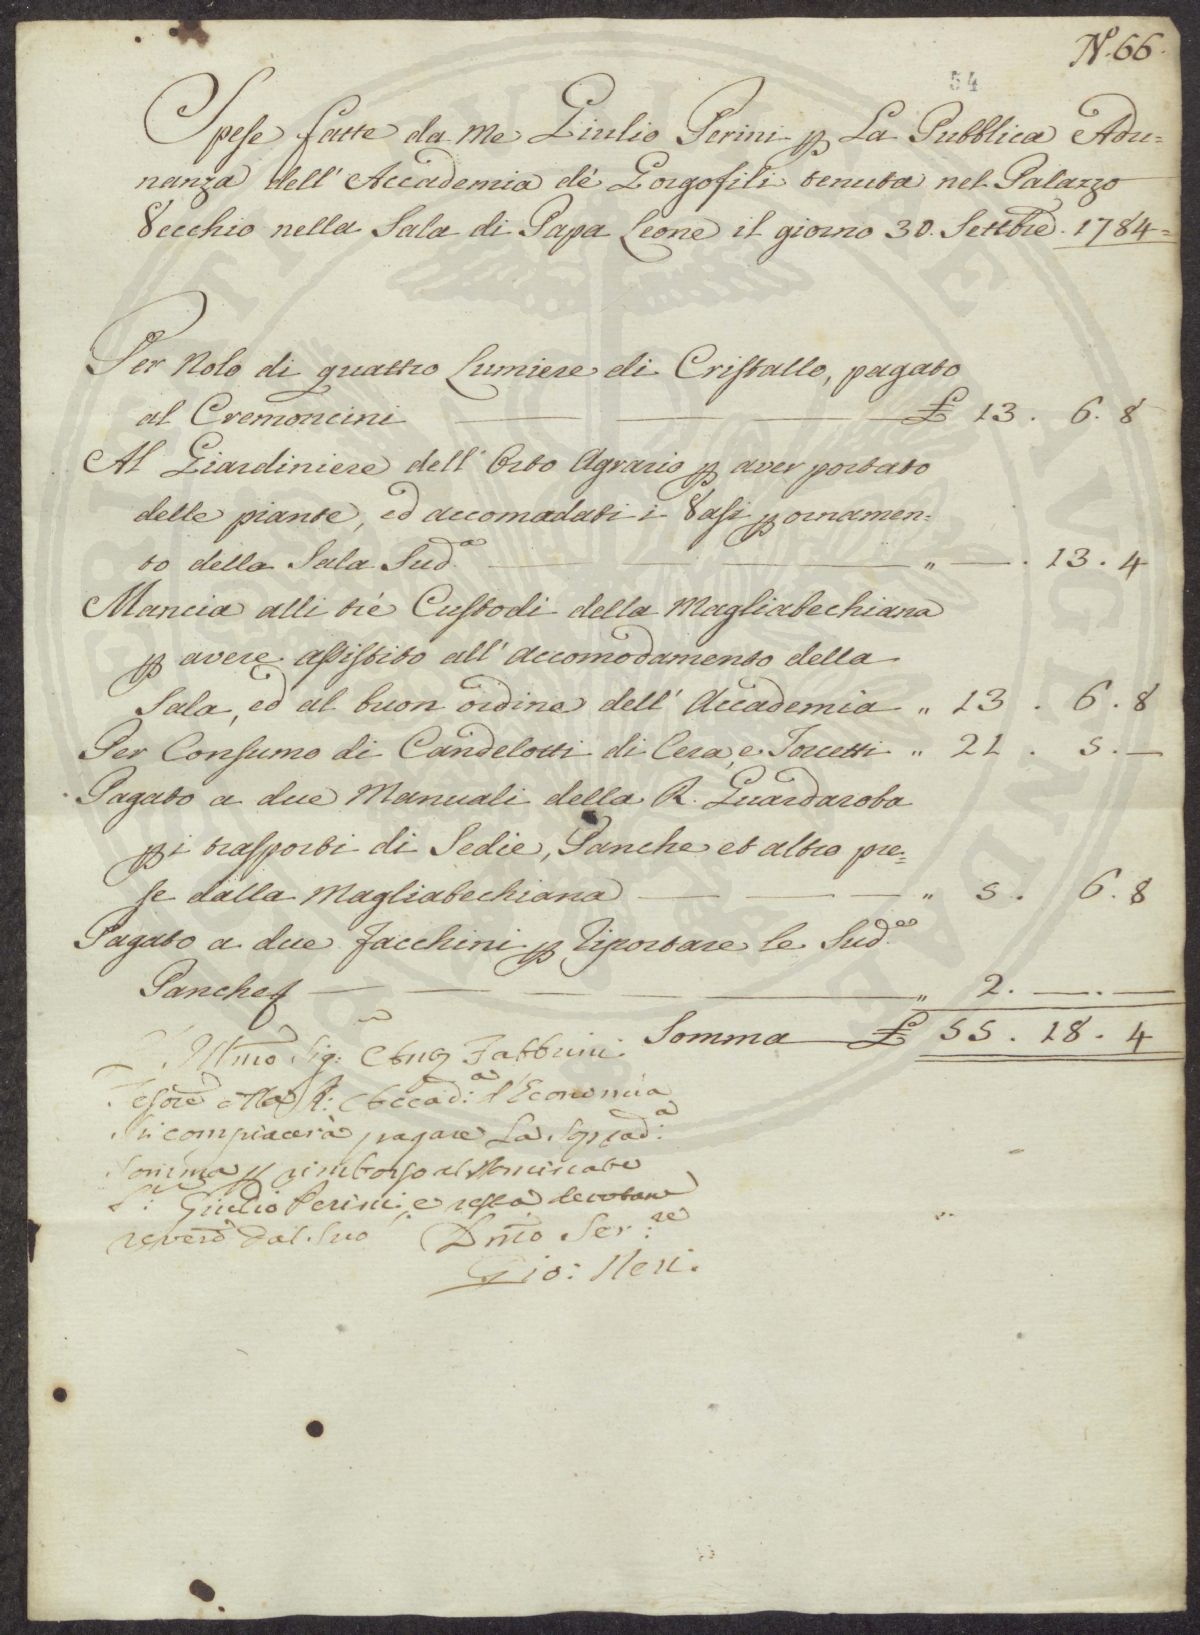 N. 66.
54
Spese fatte da me Giulio Perini p La Pubblica Adu=
nanza dell' Accademia de' Gorgofili tenuta nel Palazzo
Vecchio nella Sala di Papa Leone il giorno 30. Settbre. 1784=
Per Nolo di quattro Lumiere di Cristallo, pagato
al Cremoncini — — — £ 13. 6. 8
Al Giardiniere dell' Orto Agrario p aver portato
delle piante, ed accomadati i Vasi p ornamen=
to della Sala Sud.a — — — — " — . 13. 4
Mancia alli trè Custodi della Magliabechiana
p avere assistito all' accomodamento della
Sala, ed al buon ordine dell' Accademia " 13 . 6. 8
Per Consumo di Candelotti di Cera, e Torcetti " 21 . 5. —
Pagato a due Manuali della R. Guardaroba
p i trasporti di Sedie, Panche et altro pre=
se dalla Magliabechiana — — — " 5. 6. 8
Pagato a due Facchini p riportare le Sud.ee
Panche — — — — — " 2. —. —
Somma £ 55. 18. 4
Illmo Sig: Fabbrini
Tesore della R: Accad:a d'Economia
si compiacerà pagare La Soprad:a
Somma p rimborso al
Sr: Giulio Perini, e resta
dal Suo Dmo Ser:re
Gio: Neri.